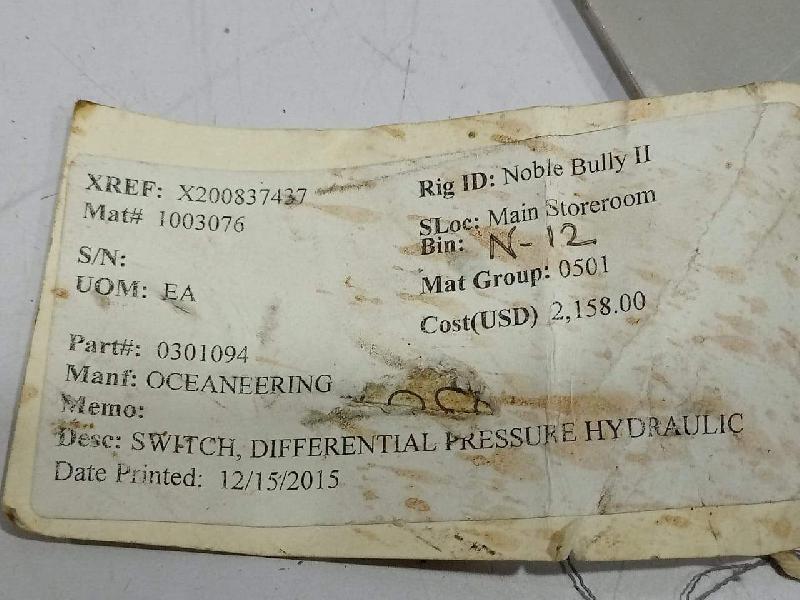 XREF: X200837437
Mat# 1003076
S/N:
UOM: EA
Part#: 0301094
Manf: OCEANEERING
Memo:
Desc: SWITCH, DIFFERENTIAL PRESSURE HYDRAULIC
Date Printed: 12/15/2015
Rig ID: Noble Bully II
SLoc: Main Storeroom
Bin: N-12
Mat Group: 0501
Cost(USD) 2,158.00